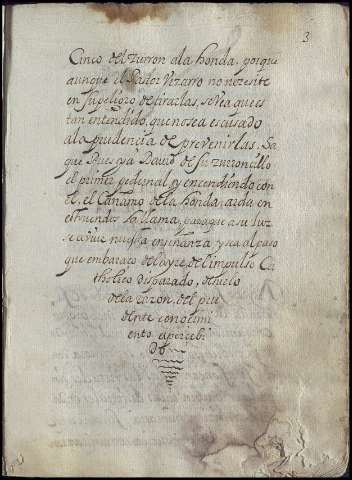 3
Cinco del Zurron ala honda, porque
aunque el Pastor Vizarro no necesite
en su peligro de tirarlas, se vea que es
tan entendido, que no sea escusado
ala prudencia de prevenirlas. Sa
que Pues ya David de su zurroncillo
el primer pedernal, y encendiendo con
el, el Cañamo de la honda, arda en
estruendos la llama, para que a su luz
se avive nuestra enseñanza, y sea al paso
que embarazo del ayre, del impulso Ca
tholico disparado, desuelo
de la razon, del pru
dente conozimi
ento apercebi
do